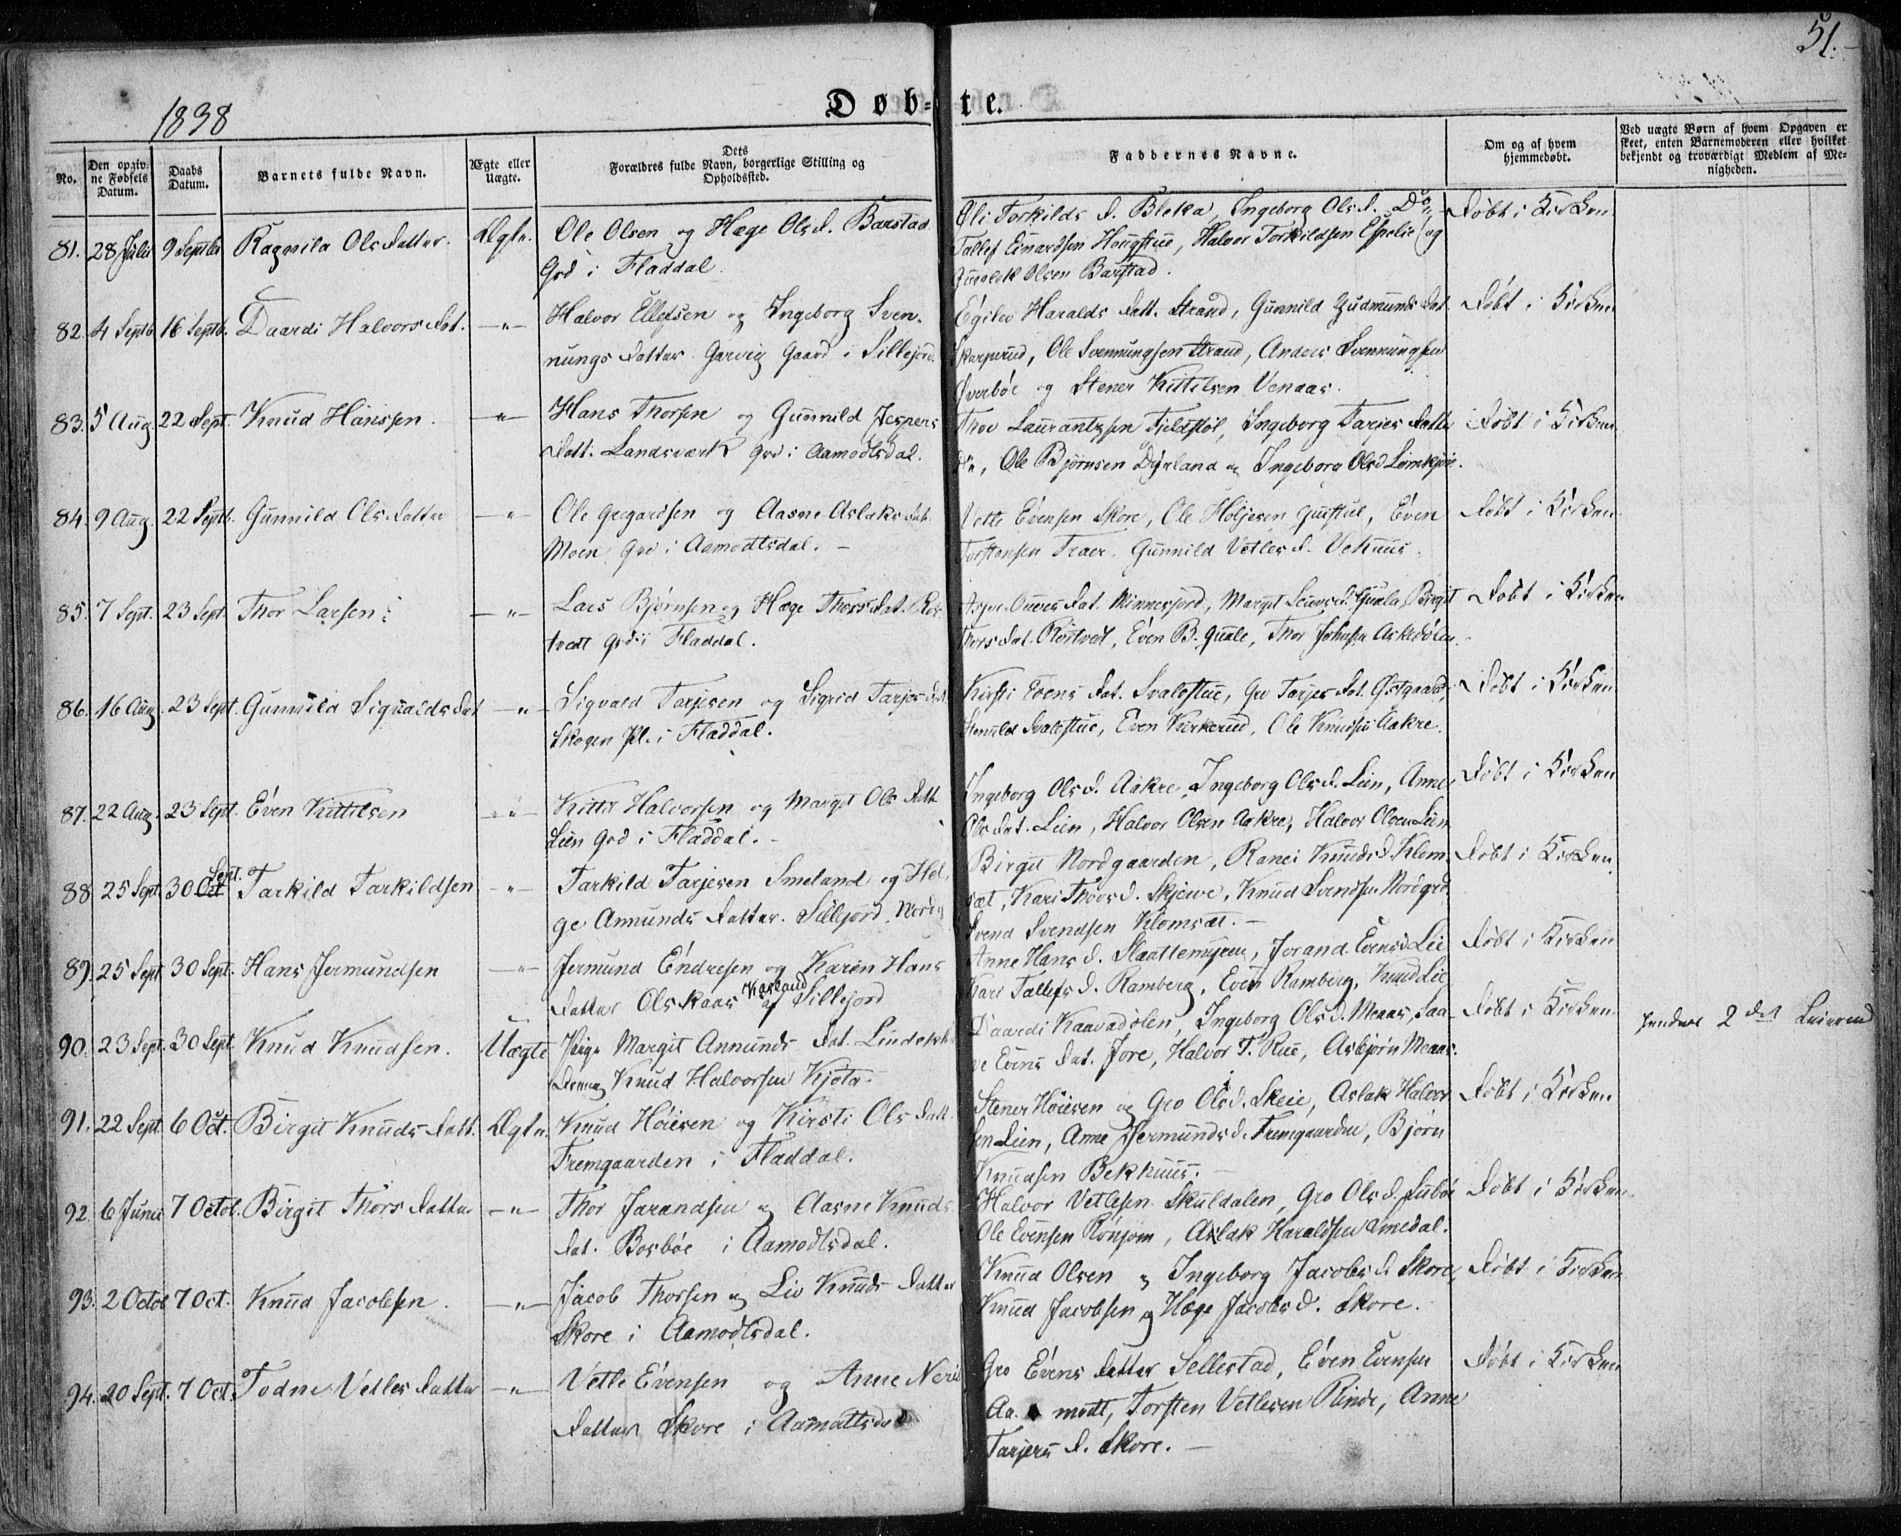 51.
1838
Døbte.
No.
Den opgivne Fødsels Datum.
Daabs Datum.
Barnets fulde Navn.
Ægte eller Uægte.
Dets
Forældres fulde Navn, borgerlige Stilling og
Opholdssted.
Faddernes Navne.
Om og af hvem
hjemmedøbt.
Ved uægte Børn af hvem Opgaven er
skeet, enten Barnemoderen eller hvilket
bekjendt og troværdigt Medlem af Me-
nigheden.
81. 28 Julii 9 Septbr Ragnild Olsdatter. Ægte. Ole Olsen og Hæge Olsd. Barstad
Grd i Fladdal.
Torkilds d. Bleka, Ingeborg Olsd. Do,
Tallef Einardsen Haugstue, Halvor Torkildsen Espelie og
Olsen Barstad.
Døbt i Kirken
82. 4 Septb. 16 Septb. Daardi Halvorsdat. -"- Halvor Ellefsen og Ingeborg Sven-
nungsdatter Garvig Gaard i Sillejord
Haralds datt. Strand, Gunnild Gudmunds dat
Skarprud, Ole Svennungsen Strand, Anders Svennungsen
Øverbøe og Stener Kittilsen Venaas.
Døbt i Kirken
83. 5 Aug 22 Sept. Knud Hanssen. -"- Hans Thorsen og Gunnild Jespers
datt. Landsværk Grd i Aamodtsdal.
Thor Laurantzsen Fjeldstøl, Ingeborg Tarjes datte
do, Ole Bjørnsen Dyrland og Ingeborg Olsd
Døbt i Kirken
84. 9 Aug. 22 Septb. Gunnild Olsdatter -"- Ole Gregardsen og Aasne Aslaksdat.
Moen Grd i Aamodtsdal. -
Vetle Evensen Skore, Ole Holjesen, Even
Torstensen Traer. Gunnild Vetles d. Vehuus.
Døbt i Kirken
85. 7 Sept. 23 Sept. Thor Larsen -"- Lars Bjørnsen og Hæge Thorsdat. Ros-
tvedt Grd i Fladdal.
dat. Minnesjord, Margit, Birgit
Thorsdat. Rostvedt, Even B. Quale, Thor Johnsen Askedølen
Døbt i Kirken
86. 16 Aug. 23 Sept. Gunnild Sigvaldsdat -"- Sigvald Tarjesen og Sigrid Tarjesdat
Skogen Pl. i Fladdal.
Kirsti Evens dat. Svalestue, Gro Tarjes dat. Østgaard,
Svalestue, Even Kirkerud, Ole Knudsen Aakre.
Døbt i Kirken
87. 22 Aug. 23 Sept. Even Kittilsen -"- Kittil Halvorsen og Margit Ols datt
Lien Grd i Fladdal. -
Ingeborg Olsd. Aakre, Ingeborg Olsd. Lien, Anne
Olsdat. Lien, Halvor Olsen Aakre, Halvor Olsen Lien
Døbt i Kirken
88. 25 Sept. 30 Oct Sept. Tarkild Tarkildsen -"- Tarkild Tarjesen Smeland og Hel-
ge Amundsdatter. Sillejord
Birgit Nordgaarden, Ranei Knudsd. Klom-
sæt, Kari Thorsd. Skjeve, Knud Svendsen Nordgrd.
Svend Svendsen Klomsæt. -
Døbt i Kirken
89. 25 Sept. 30 Sept. Hans Jermundsen -"- Jermund Endresen og Karen Hans
datter Olskaas Kasland af Sillejord
Anne Hans d. Slaattemyren, Jorand Evensd Lie
Kari Tallefs d. Ramberg, Even Ramberg, Knud Lie
Døbt i Kirken
90. 23 Sept. 30 Sept. Knud Knudsen. Uægte Pige Margit Amunds dat.
Dreng Knud Halvorsen Kjøta.
Daardi Kaavadølen, Ingeborg Olsd. Meaas, Saa-
ve Evens dat. Jore, Halvor T. Rue, Asbjørn Meaas.
Døbt i Kirken
hendes 2det Leiermaal
91. 22 Sept. 6 Oct. Birgit Knudsdatt. Ægte. Knud Høiesen og Kirsti Olsdatt.
Fremgaarden i Fladdal.
Stener Høiesen og Gro Olsd. Skeie, Aslak Halvor-
sen Lien, Anne Jermunds d. Fremgaarden, Bjørn
Knudsen Bekhuus. -
Døbt i Kirken
92. 6 Junii 7 Octob. Birgit Thorsdatter -"- Thor Jarandsen og Aasne Knuds-
dat. Bosbøe i Aamodtsdal.
Halvor Vetlesen Skuldalen, Gro Olsd.
Ole Evensen Ronjom, Aslak Haraldsen Amedal.
Døbt i Kirken
93. 2 Octob 7 Oct. Knud Jacobsen. -"- Jacob Thorsen og Liv Knudsdatter
Skore i Aamodtsdal.
Knud Olsen og Ingeborg Jacobs d. Skore,
Knud Jacobsen og Hæge Jacobsd. Skore.
Døbt i Kirken
94. 20 Sept. 7 Oct. Todne Vetlesdatter -"- Vetle Evensen og Anne Neri
datter Skore i Aamottsdal
Gro Evens datter Sellestad, Even Evensen
Aa. modt, Torsten Vetlesen Rinde, Anne
Tarjers d. Skore. -
Døbt i Kirken